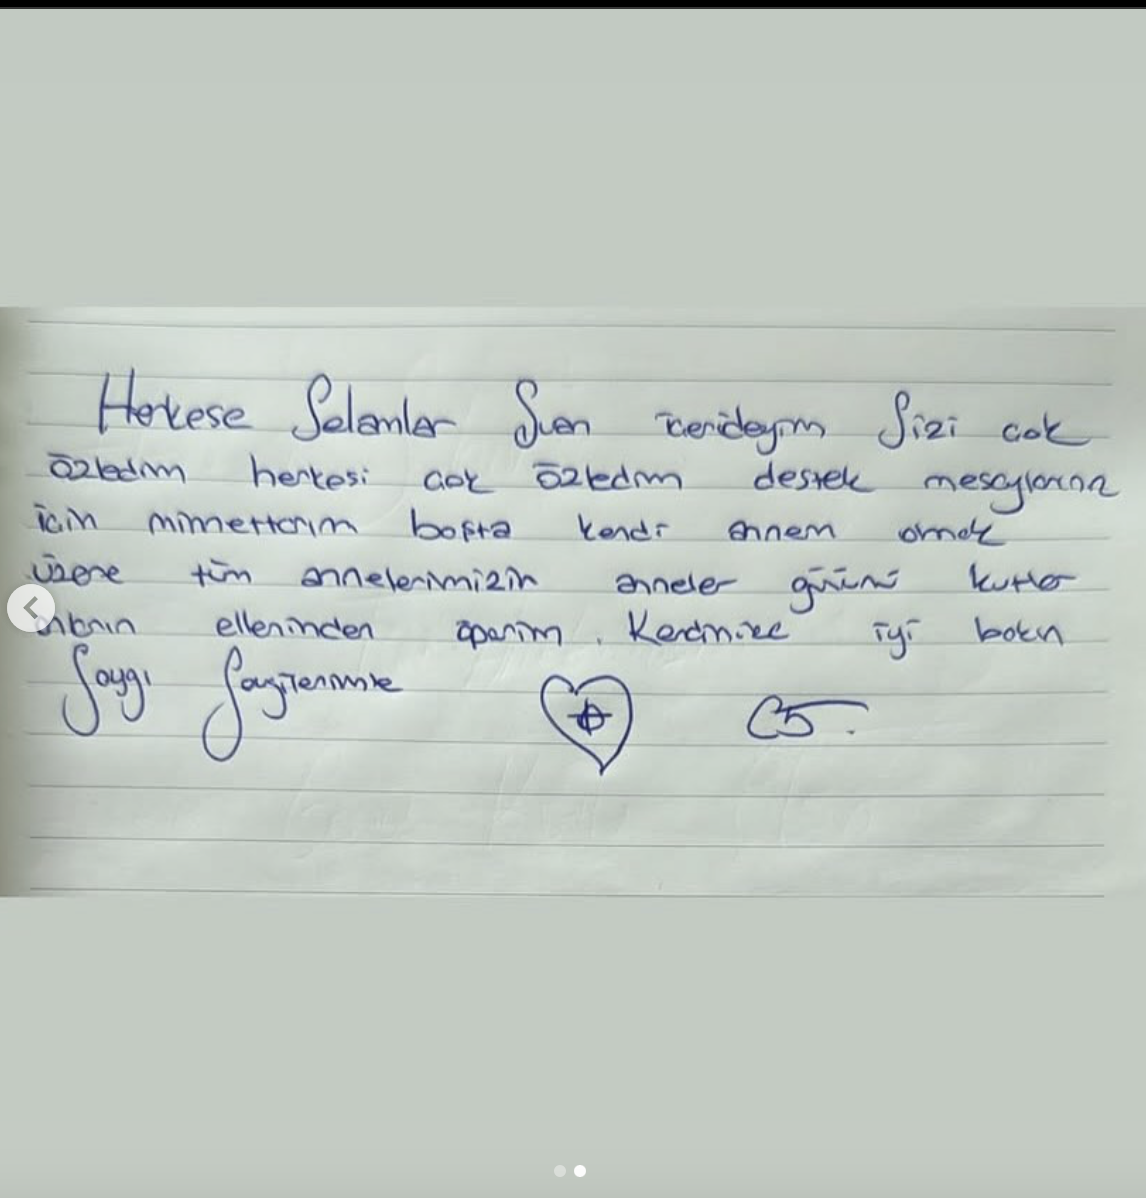 Herkese Selamlar Şuan içerideyim Sizi cok
özledim herkesi cok özledim destek mesajlarınız
icin minnettarım başta kendi annem olmak
üzere tüm annelerimizin anneler gününü kutlar
ellerinden öperim. Kendinize iyi bakın
Saygı Sevgilerimle
C5.